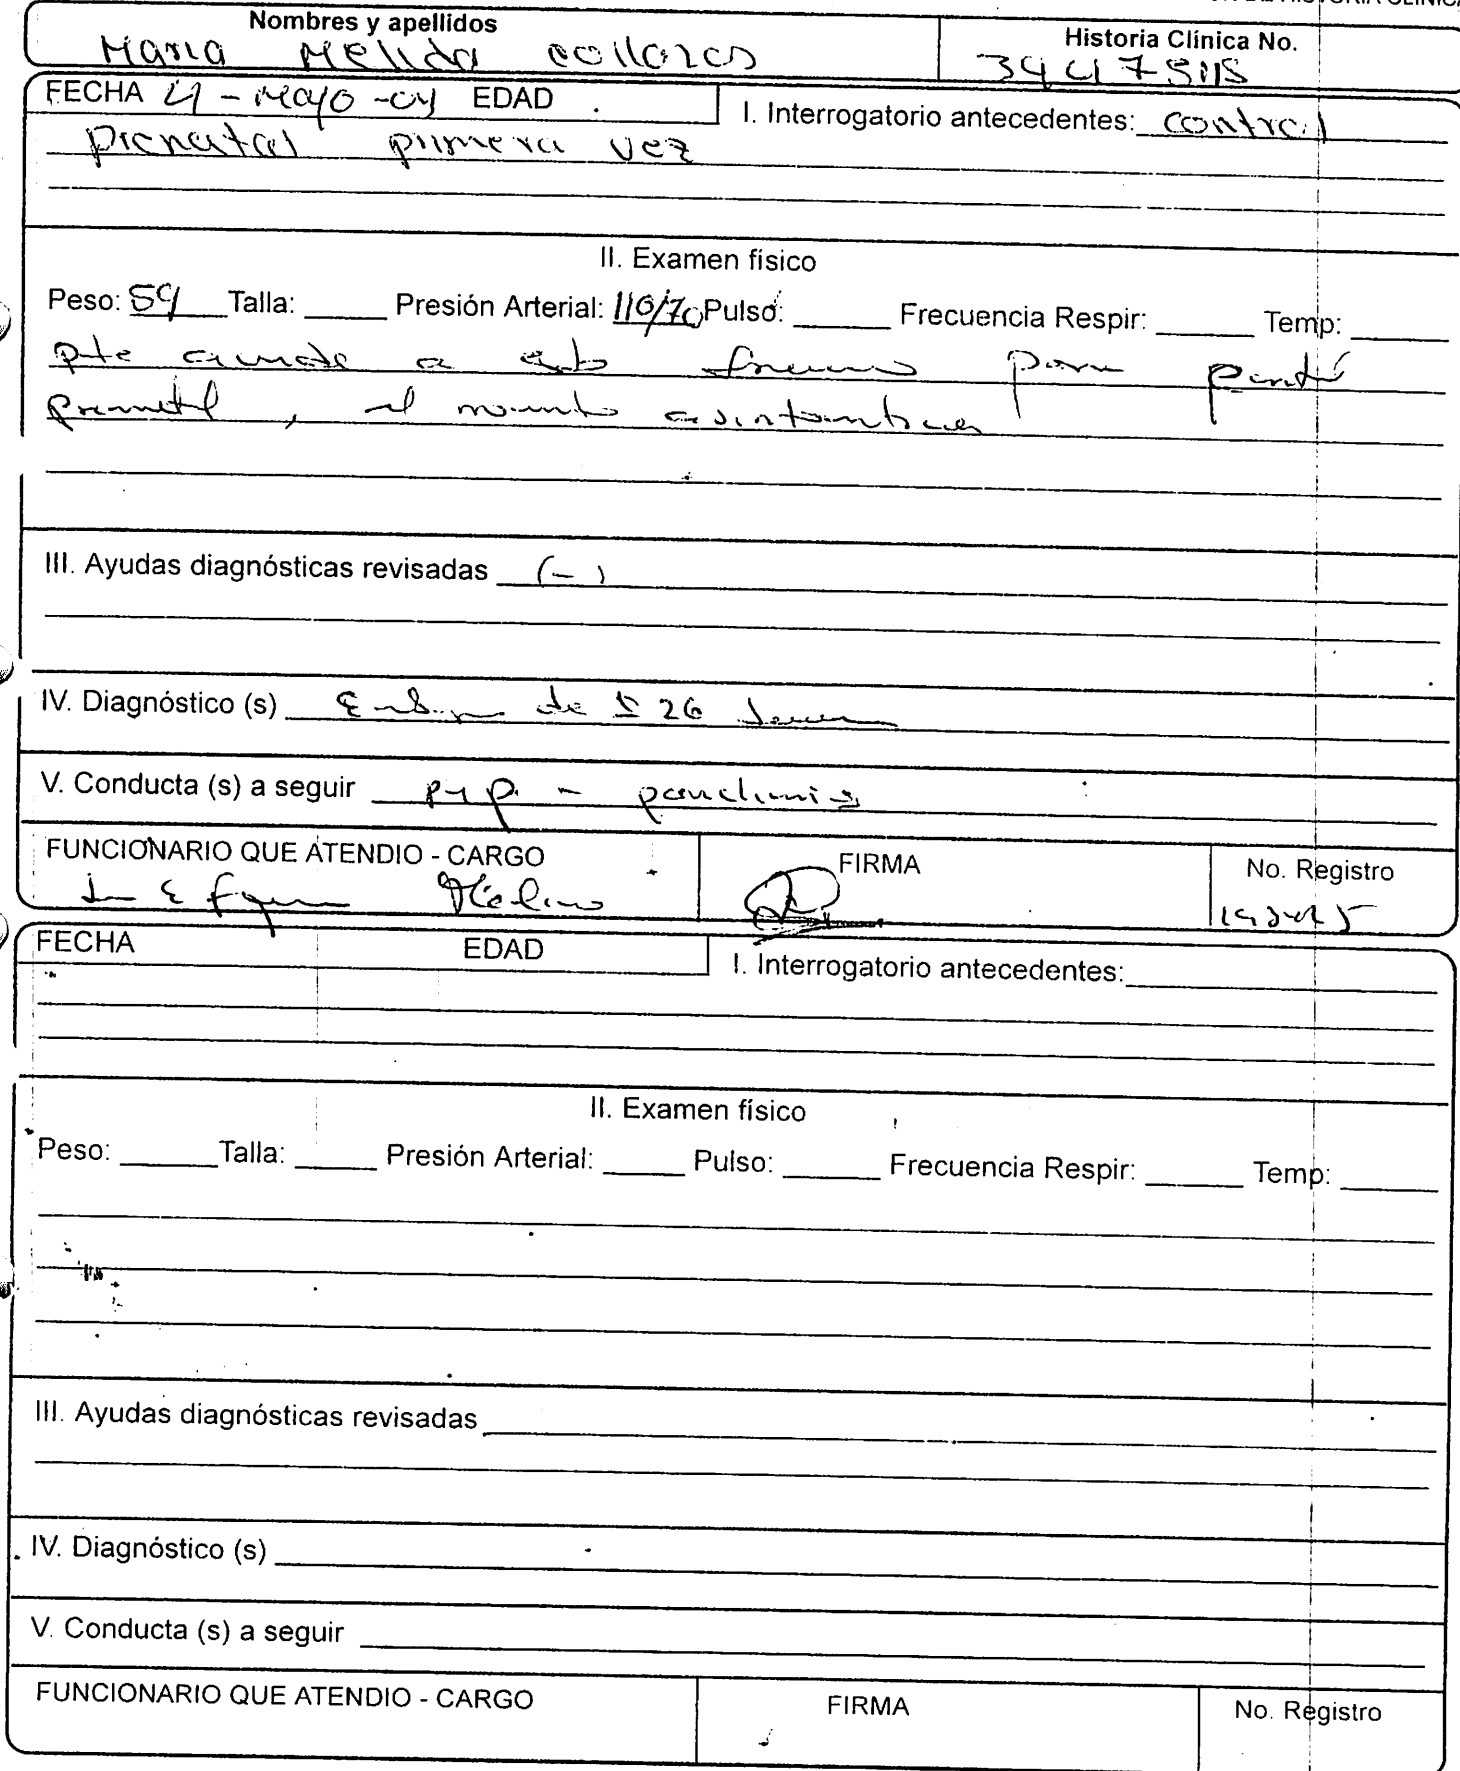 HISTORIA CLINICA
Nombres y apellidos
Historia Clínica No.
Maria Melida collazos
FECHA 4 - Mayo - 04 EDAD
I. Interrogatorio antecedentes: control
prenatal primera vez
II. Examen físico
Peso: 59 Talla: Presión Arterial: 110/70 Pulso: Frecuencia Respir: Temp:
pte acude a para
prenatal, al momento asintomatica
III. Ayudas diagnósticas revisadas (-)
IV. Diagnóstico (s) Embarazo de ± 26 semanas
V. Conducta (s) a seguir pyp - paraclinicos
FUNCIONARIO QUE ATENDIO - CARGO
FIRMA
No. Registro
Molina
FECHA EDAD
I. Interrogatorio antecedentes:
II. Examen físico
Peso: Talla: Presión Arterial: Pulso: Frecuencia Respir: Temp:
III. Ayudas diagnósticas revisadas
IV. Diagnóstico (s)
V. Conducta (s) a seguir
FUNCIONARIO QUE ATENDIO - CARGO
FIRMA
No. Registro